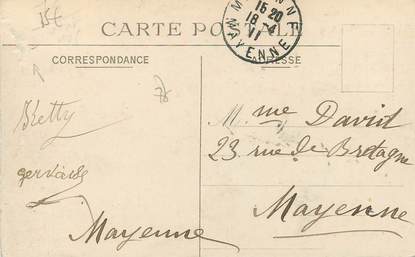 15€
CARTE POSTALE
MAYENNE
15 20
18 -4
11
MAYENNE
CORRESPONDANCE
ADRESSE
78
Mme David
23 rue de Bretagne
Mayenne
Mayenne